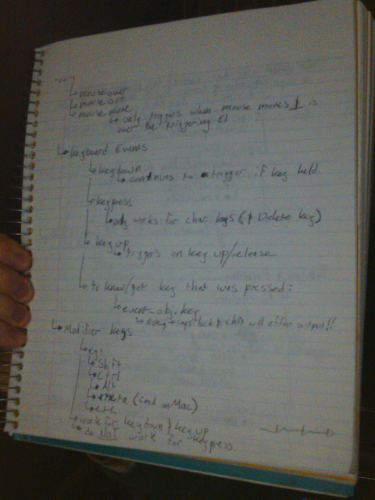 mouse over
mouse out
mouse move
only triggers when mouse moves & is
over the triggering El
Keyboard Events
keydown
continues to trigger if key held
keypress
only works for char keys (& Delete key)
key up
triggers on key up/release
to know/get key that was pressed:
event-obj.key
caps lock & shift will affect output!!
Modifier keys
Shift
Ctrl
Alt
meta (cmd on Mac)
etc
work for keydown & key up
do NOT work for keypress